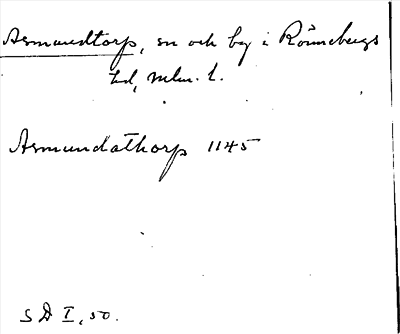 Asmundtorp, sn och by i Rönnebergs
hd, Mlm. l.
Asmundathorp 1145
SD I, 50.